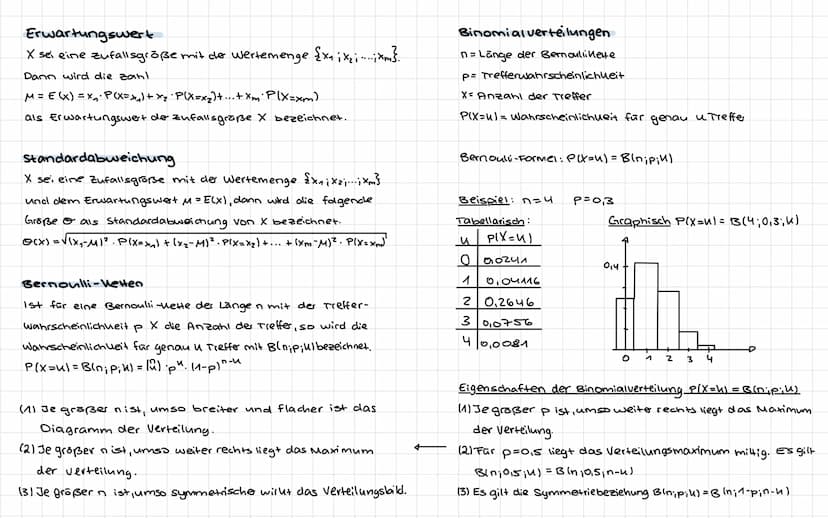 Erwartungswert
X sei eine Zufallsgröße mit der Wertemenge {x₁;x₂;...;xₘ}.
Dann wird die Zahl
μ = E(X) = x₁·P(X=x₁)+x₂·P(X=x₂)+...+xₘ·P(X=xₘ)
als Erwartungswert der Zufallsgröße X bezeichnet.
Standardabweichung
X sei eine Zufallsgröße mit der Wertemenge {x₁;x₂;...;xₘ}
und dem Erwartungswert μ = E(X), dann wird die folgende
Größe σ als Standardabweichung von X bezeichnet.
σ(X) = √(x₁-μ)²·P(X=x₁)+(x₂-μ)²·P(X=x₂)+...+(xₘ-μ)²·P(X=xₘ)
Bernoulli-Ketten
Ist für eine Bernoulli-Kette der Länge n mit der Treffer-
wahrscheinlichkeit p X die Anzahl der Treffer, so wird die
Wahrscheinlichkeit für genau k Treffer mit B(n;p;k) bezeichnet.
P(X=k) = B(n;p;k) = (n k)·pᵏ·(1-p)ⁿ⁻ᵏ
(1) Je größer n ist, umso breiter und flacher ist das
Diagramm der Verteilung.
(2) Je größer n ist, umso weiter rechts liegt das Maximum
der Verteilung.
(3) Je größer n ist, umso symmetrische wirkt das Verteilungsbild.
Binomialverteilungen
n = Länge der Bernoullikette
p = Trefferwahrscheinlichkeit
X = Anzahl der Treffer
P(X=k) = Wahrscheinlichkeit für genau k Treffer
Bernoulli-Formel: P(X=k) = B(n;p;k)
Beispiel: n=4 p=0,3
Tabellarisch:
k P(X=k)
0 0,0241
1 0,04116
2 0,2646
3 0,0756
4 0,0081
Graphisch P(X=k) = B(4;0,3;k)
0,4
0 1 2 3 4
Eigenschaften der Binomialverteilung P(X=k) = B(n;p;k)
(1) Je größer p ist, umso weiter rechts liegt das Maximum
der Verteilung.
(2) Für p=0,5 liegt das Verteilungsmaximum mittig. Es gilt
B(n;0,5;k) = B(n;0,5;n-k)
(3) Es gilt die Symmetriebeziehung B(n;p;k) = B(n;1-p;n-k)